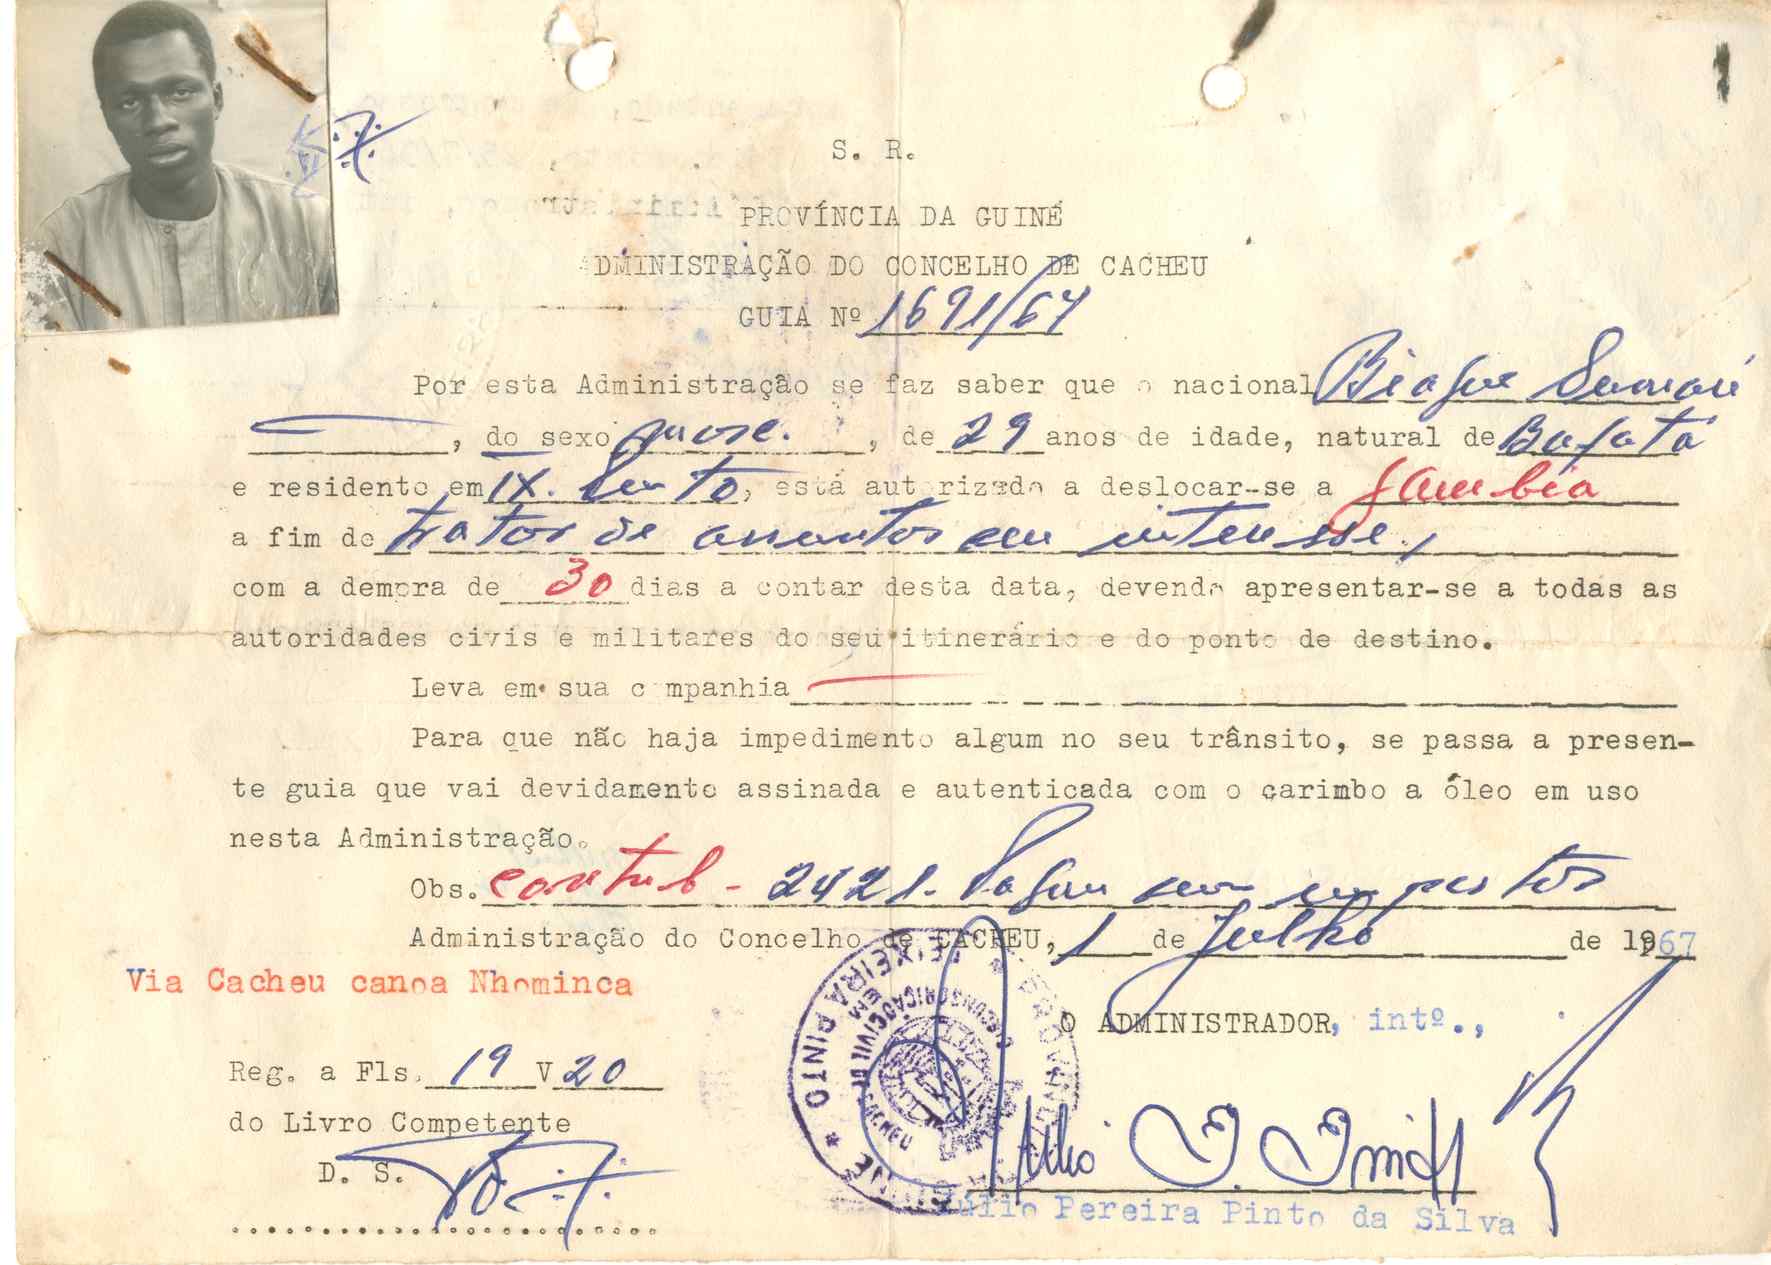 S. R.
PROVÍNCIA DA GUINÉ
ADMINISTRAÇÃO DO CONCELHO DE CACHEU
GUIA Nº 1691/67
Por esta Administração se faz saber que o nacional Biague
, do sexo masc. , de 29 anos de idade, natural de Bafatá
e residente em IX. , está autorizado a deslocar-se a Gambia
a fim de tratar de assuntos seu interesse,
com a demora de 30 dias a contar desta data, devendo apresentar-se a todas as
autoridades civis e militares do seu itinerário e do ponto de destino.
Leva em sua companhia
Para que não haja impedimento algum no seu trânsito, se passa a presen-
te guia que vai devidamente assinada e autenticada com o carimbo a óleo em uso
nesta Administração.
Obs. contrib - 2421. Pagou seus impostos
Administração do Concelho de CACHEU, 1 de Julho de 1967
Via Cacheu canoa Nhominca
O ADMINISTRADOR, intº.,
Reg. a Fls. 19 V 20
do Livro Competente
D. S.
Júlio Pereira Pinto da Silva
TEIXEIRA PINTO * GUINÉ
PROVÍNCIA
CIRCUNSCRIÇÃO CIVIL DE CACHEU